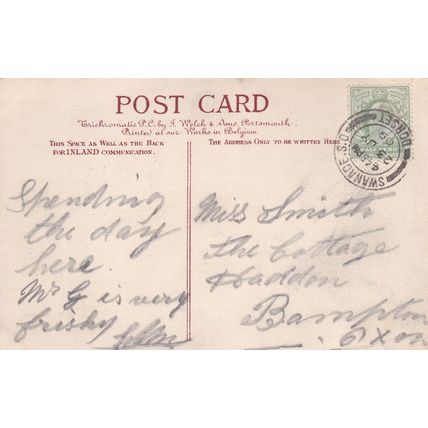 POST CARD
Trichromatic P.C. by J. Welch & Sons, Portsmouth.
Printed at our Works in Belgium
THIS SPACE AS WELL AS THE BACK
FOR INLAND COMMUNICATION.
THE ADDRESS ONLY TO BE WRITTEN HERE
SWANAGE S.O.
DORSET
Spending
the day
here.
Mr G is very
frisky
Miss Smith
The Cottage
Haddon
Bampton
Oxon